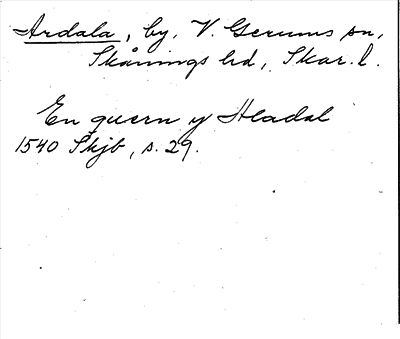 Ardala, by, V. Gerums sn,
Skånings hd, Skar. l.
En quern y Hladal
1540 Skjb, s. 29.